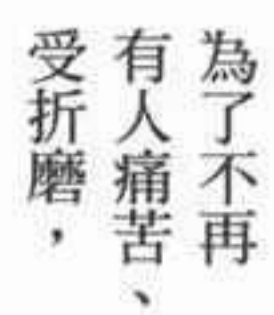 為了不再
有人痛苦、
受折磨，